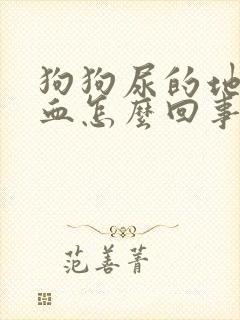 狗狗尿的地
血怎麼回事
范善菁